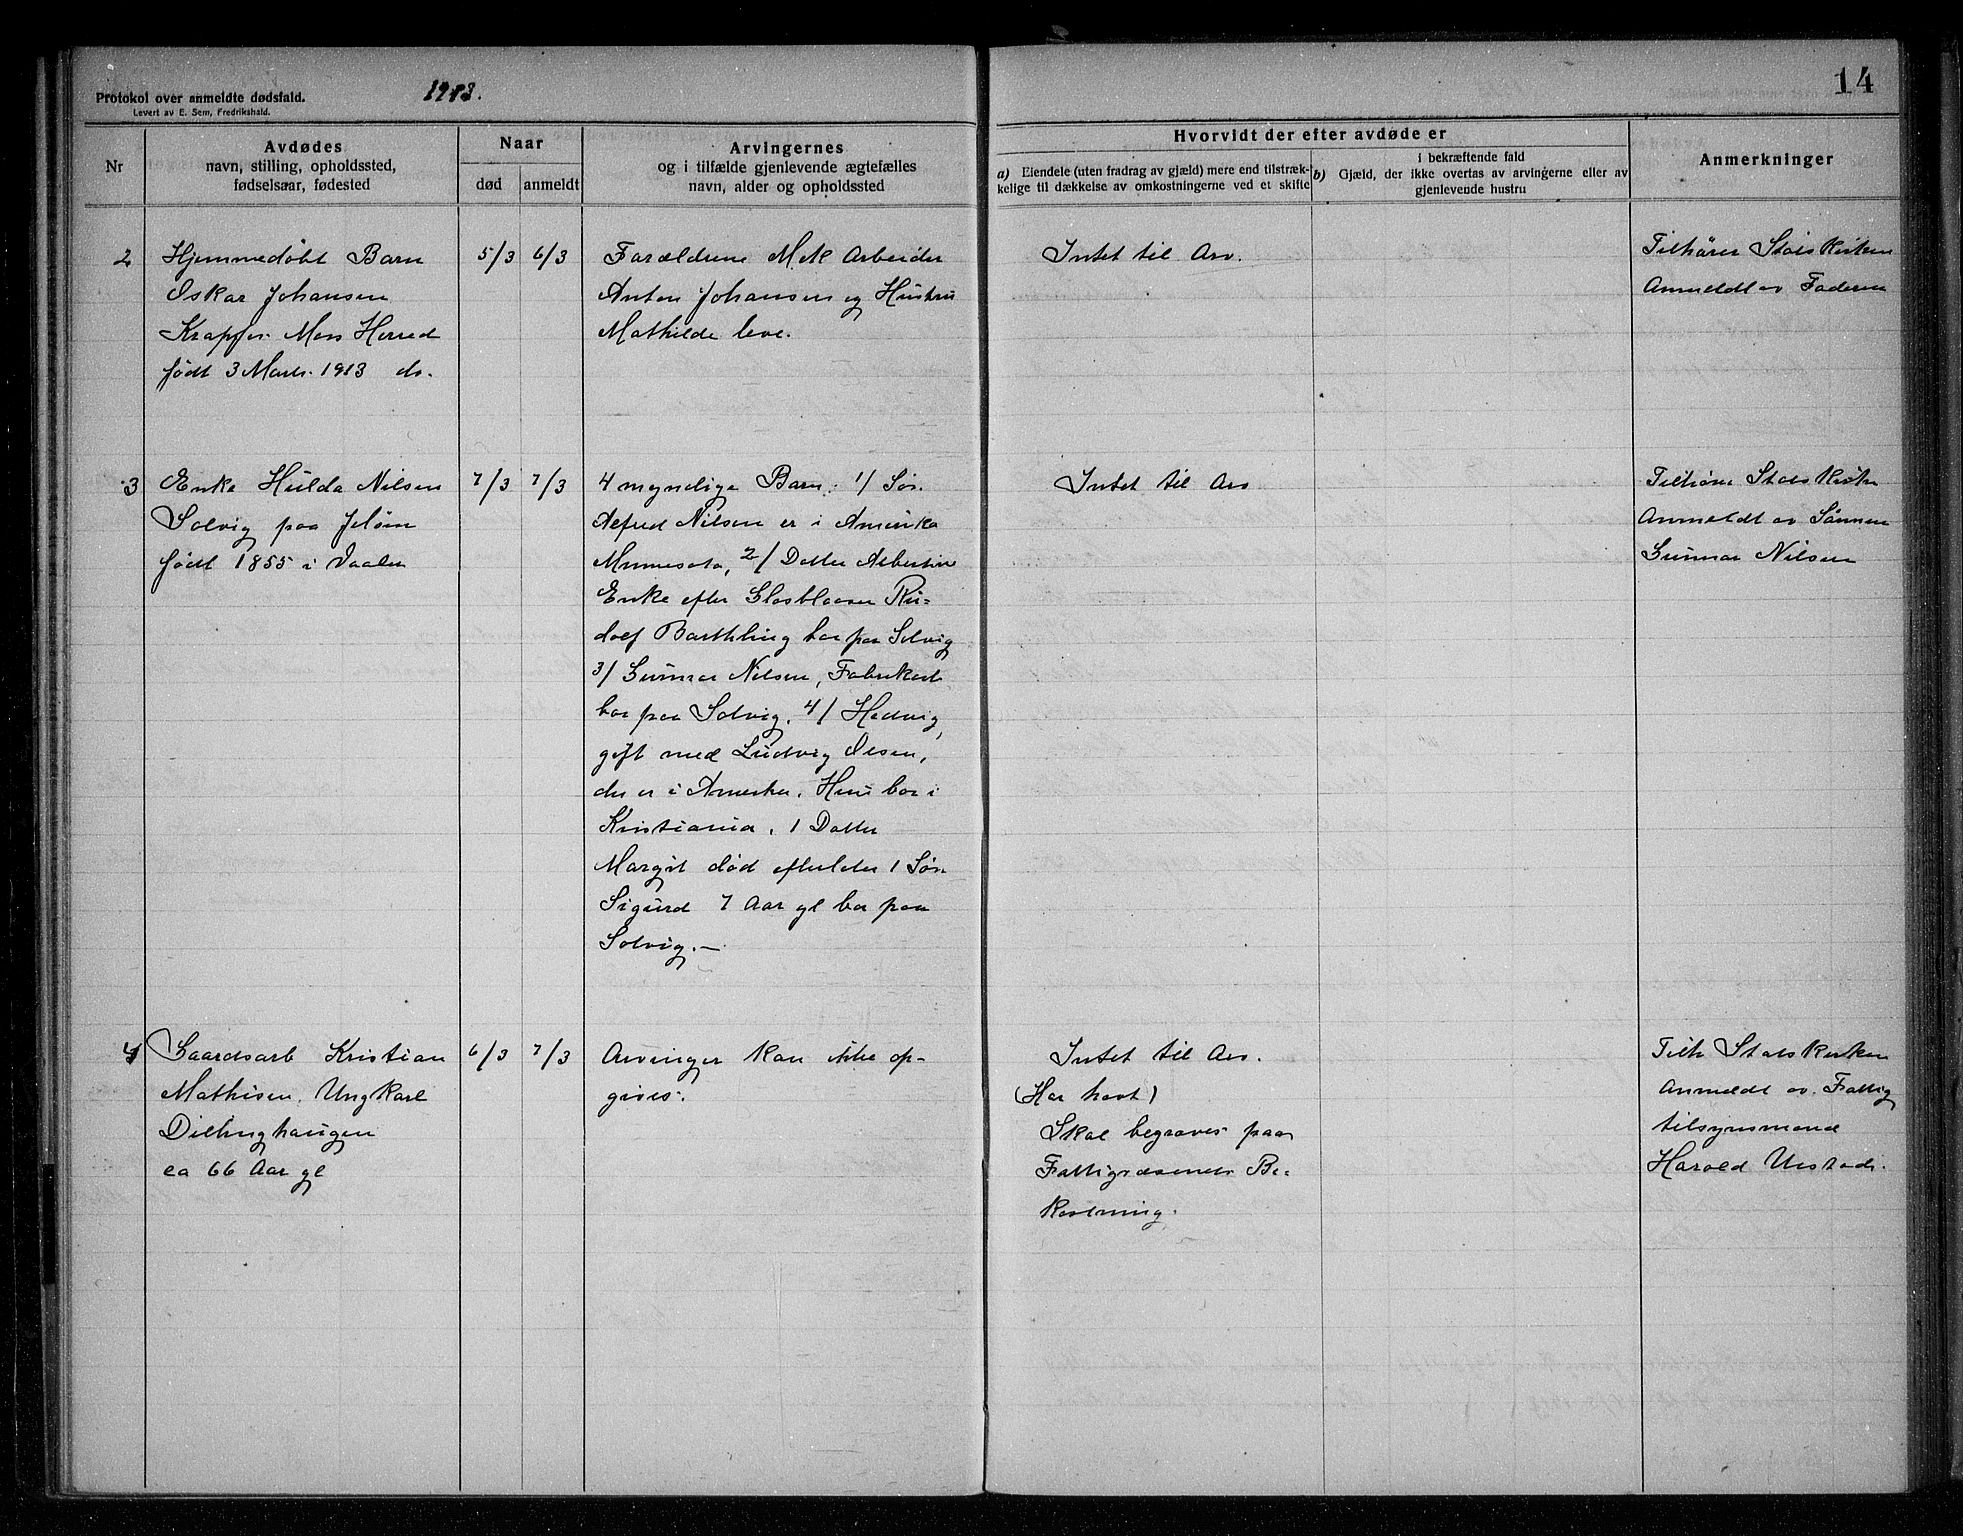 Protokol over anmeldte dødsfald.
Levert av E. Sem, Fredrikshald.
1913.
14
Nr
Avdødes
navn, stilling, opholdssted,
fødselsaar, fødested
Naar
død
anmeldt
Arvingernes
og i tilfælde gjenlevende ægtefælles
navn, alder og opholdssted
Hvorvidt der efter avdøde er
a) Eiendele (uten fradrag av gjæld) mere end tilstræk-
kelige til dækkelse av omkostningerne ved et skifte
i bekræftende fald
b) Gjæld, der ikke overtas av arvingerne eller av
gjenlevende hustru
Anmerkninger
2
Hjemmedøbt Barn
Oskar Johansen
Krapfos Moss Herred
født 3 Marts 1913 ds.
5/3
6/3
Forældrene Mek Arbeider
Anton Johansen og Hustru
Mathilde leve.
Intet til Arv.
Tilhører Statskirken
Anmeldt av Faderen
3
Enke Hulda Nilsen
Solvig paa Jeløen
født 1855 i Vaaler
7/3
7/3
4 myndige Barn: 1/ Søn
Alfred Nilsen er i Amerika
Minnesota, 2/ Datter Albertine
Enke efter Glasblaaser Ru-
dolf Barthling bor paa Solvig
3/ Gunnar Nilsen, Fabrikarb
bor paa Solvig, 4/ Hedvig,
gift med Ludvig Olsen,
der er i Amerika. Hun bor i
Kristiania, 1 Datter
Margit død efterlater 1 Søn
Sigurd 7 Aar gl bor paa
Solvig. —
Intet til Arv
Tilhører Statskirken
Anmeldt av Sønnen
Gunnar Nilsen
4
Gaardsarb Kristian
Mathisen. Ungkarl
Dillinghaugen
ca 66 Aar gl
6/3
7/3
Arvinger kan ikke op-
gives.
Intet til Arv.
(Har havt)
Skal begraves paa
Fattigvæsenets Be-
kostning.
Tilh Statskirken
Anmeldt av Fattig
tilsynsmand
Harald